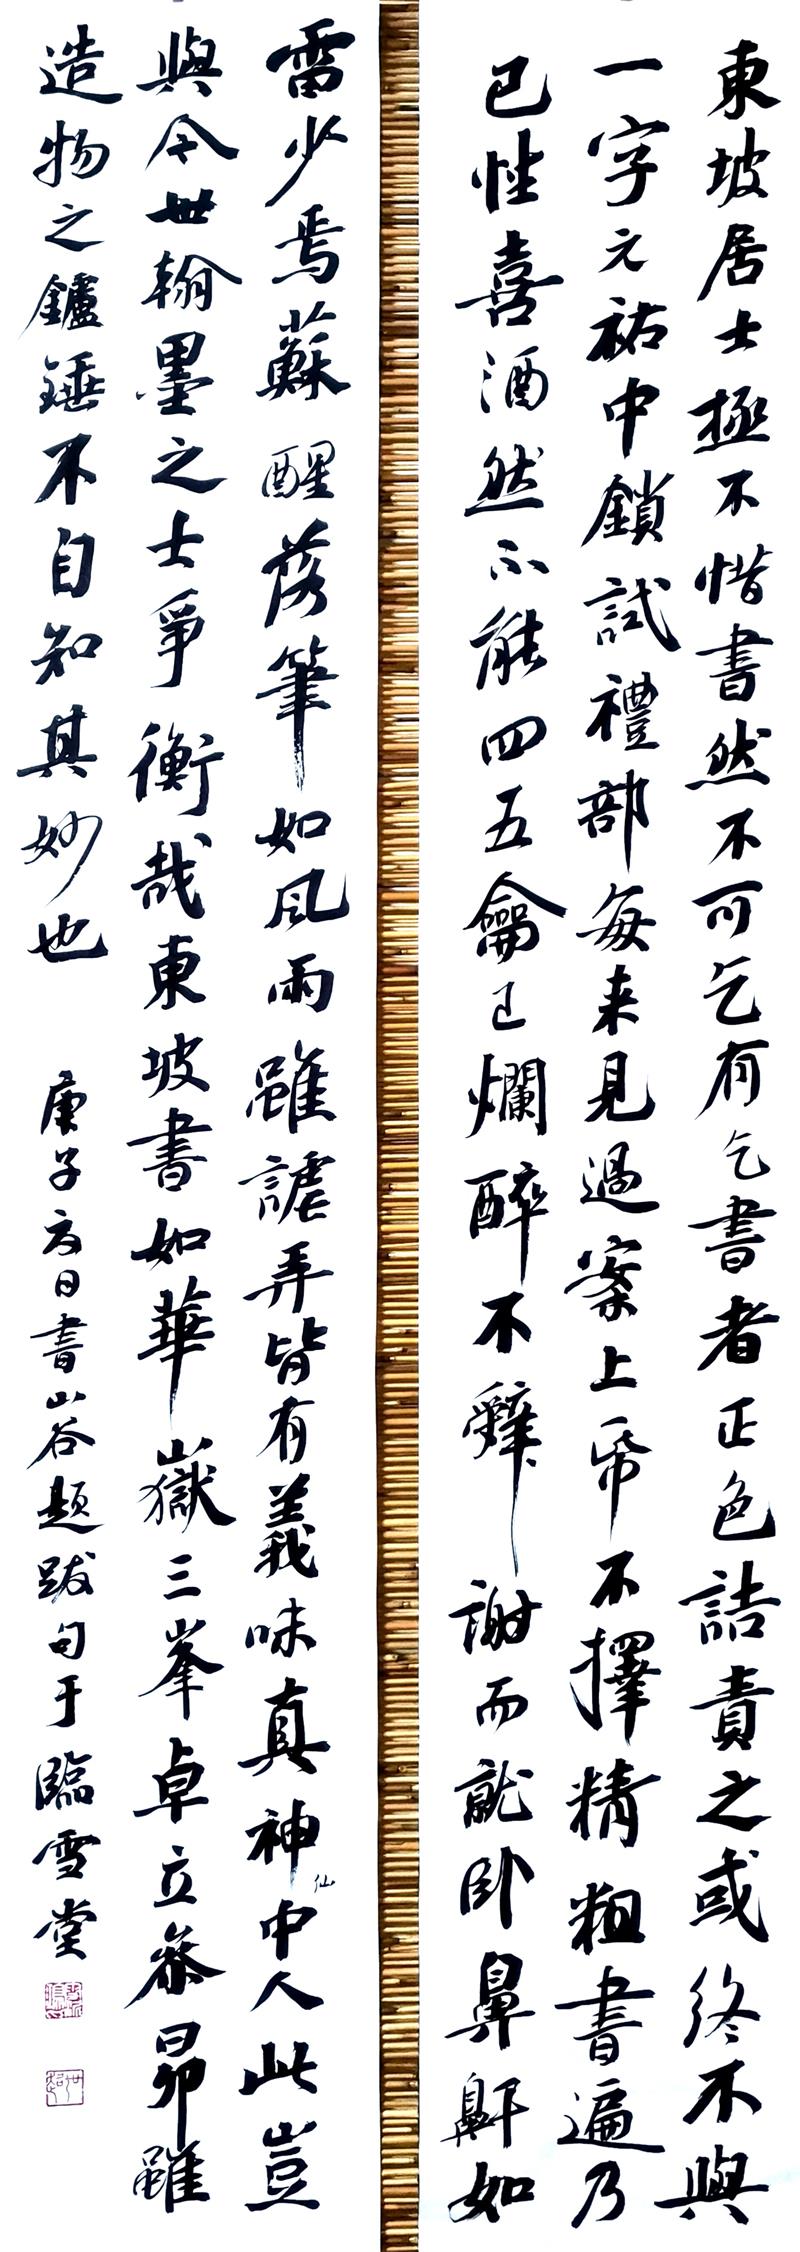 東坡居士極不惜書然不可乞有乞書者正色詰責之或終不與
一字元祐中鎖試禮部每来見過案上帋不擇精粗書遍乃
已性喜酒然不能四五龠已爛醉不辭謝而就卧鼻鼾如
雷少焉蘇醒落筆如風雨雖謔弄皆有義味真神仙中人此豈
與今世翰墨之士爭衡哉東坡書如華嶽三峯卓立叅昴雖
造物之鑪錘不自知其妙也
庚子六日書山谷題跋句于臨雪堂